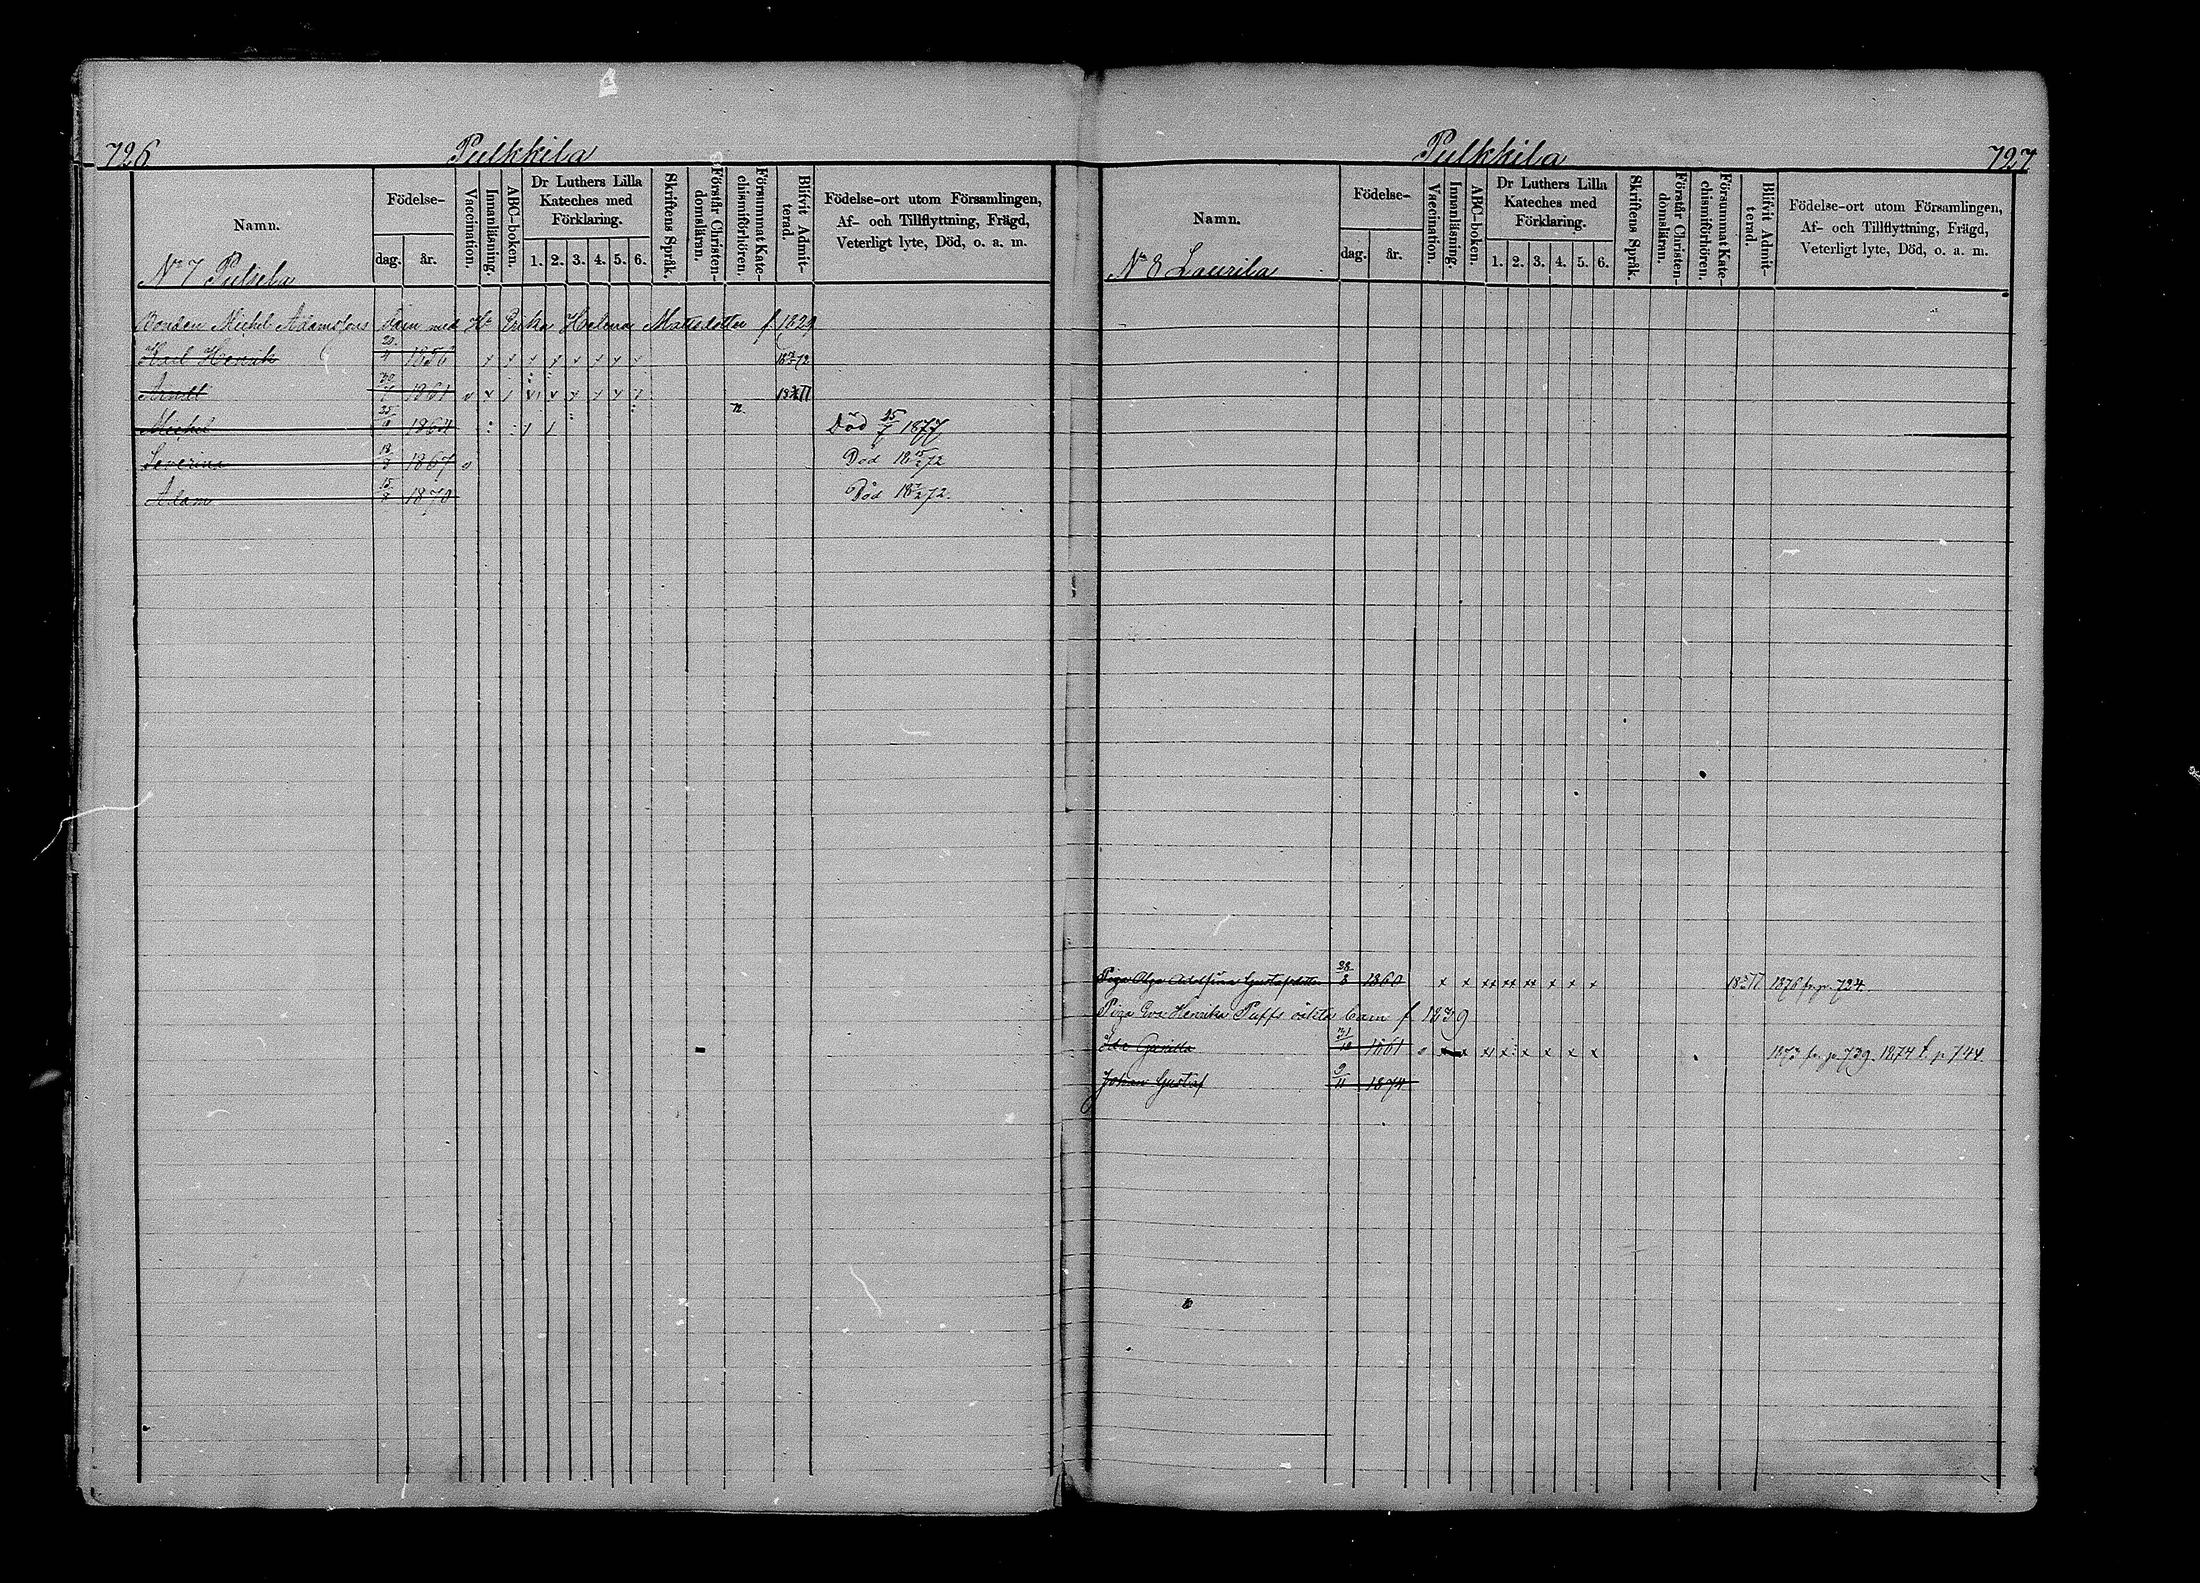 726 Pulkkila
Namn. Födelse- dag. år. Vaccination. Innanläsning. ABC-boken. Dr Luthers Lilla Kateches med Förklaring. 1. 2. 3. 4. 5. 6. Skriftens Språk. Förstår Christendomsläran. Försummat Katechismiförhören. Blifvit Admitterad. Födelse-ort utom Församlingen, Af- och Tillflyttning, Frägd, Veterligt lyte, Död, o. a. m.
No 7
Bonden Michel Adamsons barn med Hu Erika Helena Mattsdotter f 1829
Karl Henrik 1856
1861
Michel 25 1864 Död 25/7 1877
Severina 1867 Död 18 72
Adam 15/8 1870 Död 18 72.
Pulkkila 727
Namn. Födelse- dag. år. Vaccination. Innanläsning. ABC-boken. Dr Luthers Lilla Kateches med Förklaring. 1. 2. 3. 4. 5. 6. Skriftens Språk. Förstår Christendomsläran. Försummat Katechismiförhören. Blifvit Admitterad. Födelse-ort utom Församlingen, Af- och Tillflyttning, Frägd, Veterligt lyte, Död, o. a. m.
No 8 Laurila
Piga Olga Adolfina Gustafsdotter 28/8 1860 x x xx xx x x x x 1876 fr. p. 724.
Piga Eva Henrika Puffs oäkta barn f 1839
Ida 31/12 1861 1873 fr. p. 739. 1874 t. p 744
Johan Gustaf 9/11 1874